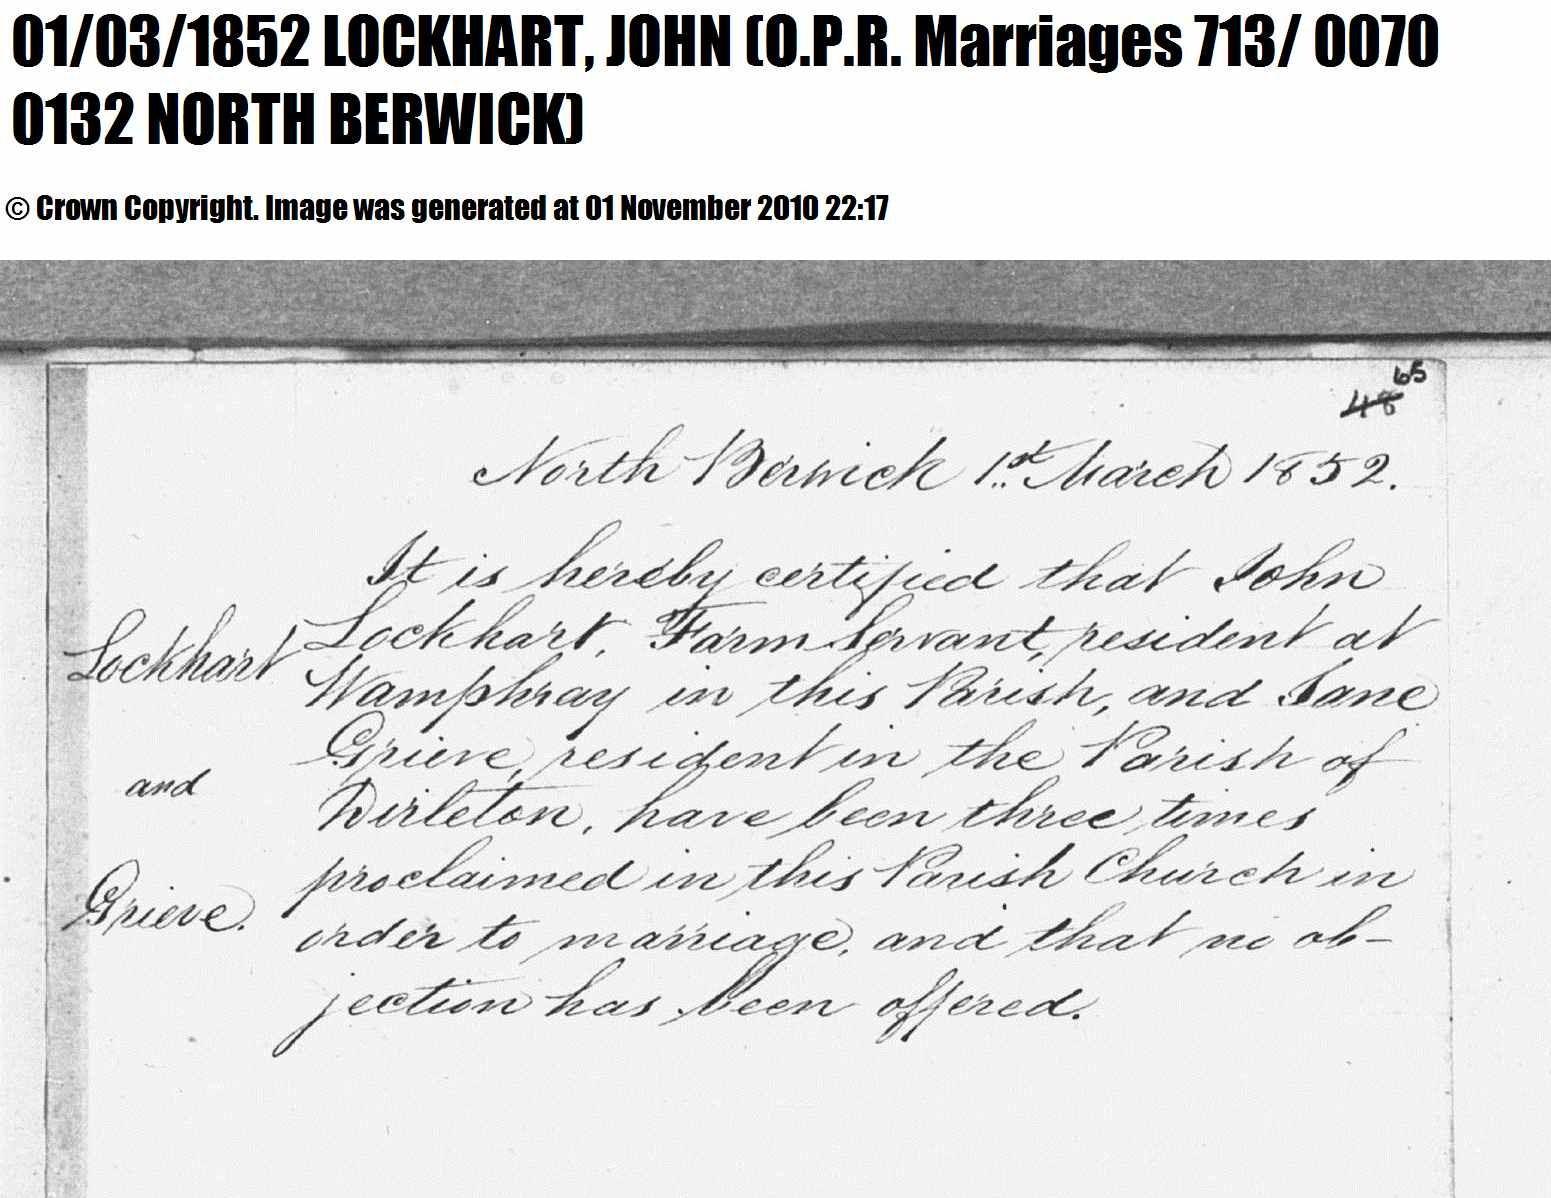 01/03/1852 LOCKHART, JOHN (O.P.R. Marriages 713/ 0070
0132 NORTH BERWICK)
© Crown Copyright. Image was generated at 01 November 2010 22:17
65
48
North Berwick 1st March 1852.
It is hereby certified that John
Lockhart, Farm Servant, resident at
Wamphray in this Parish, and Jane
Grieve, resident in the Parish of
Dirleton, have been three times
proclaimed in this Parish Church in
order to marriage, and that no ob-
jection has been offered.
Lockhart
and
Grieve.